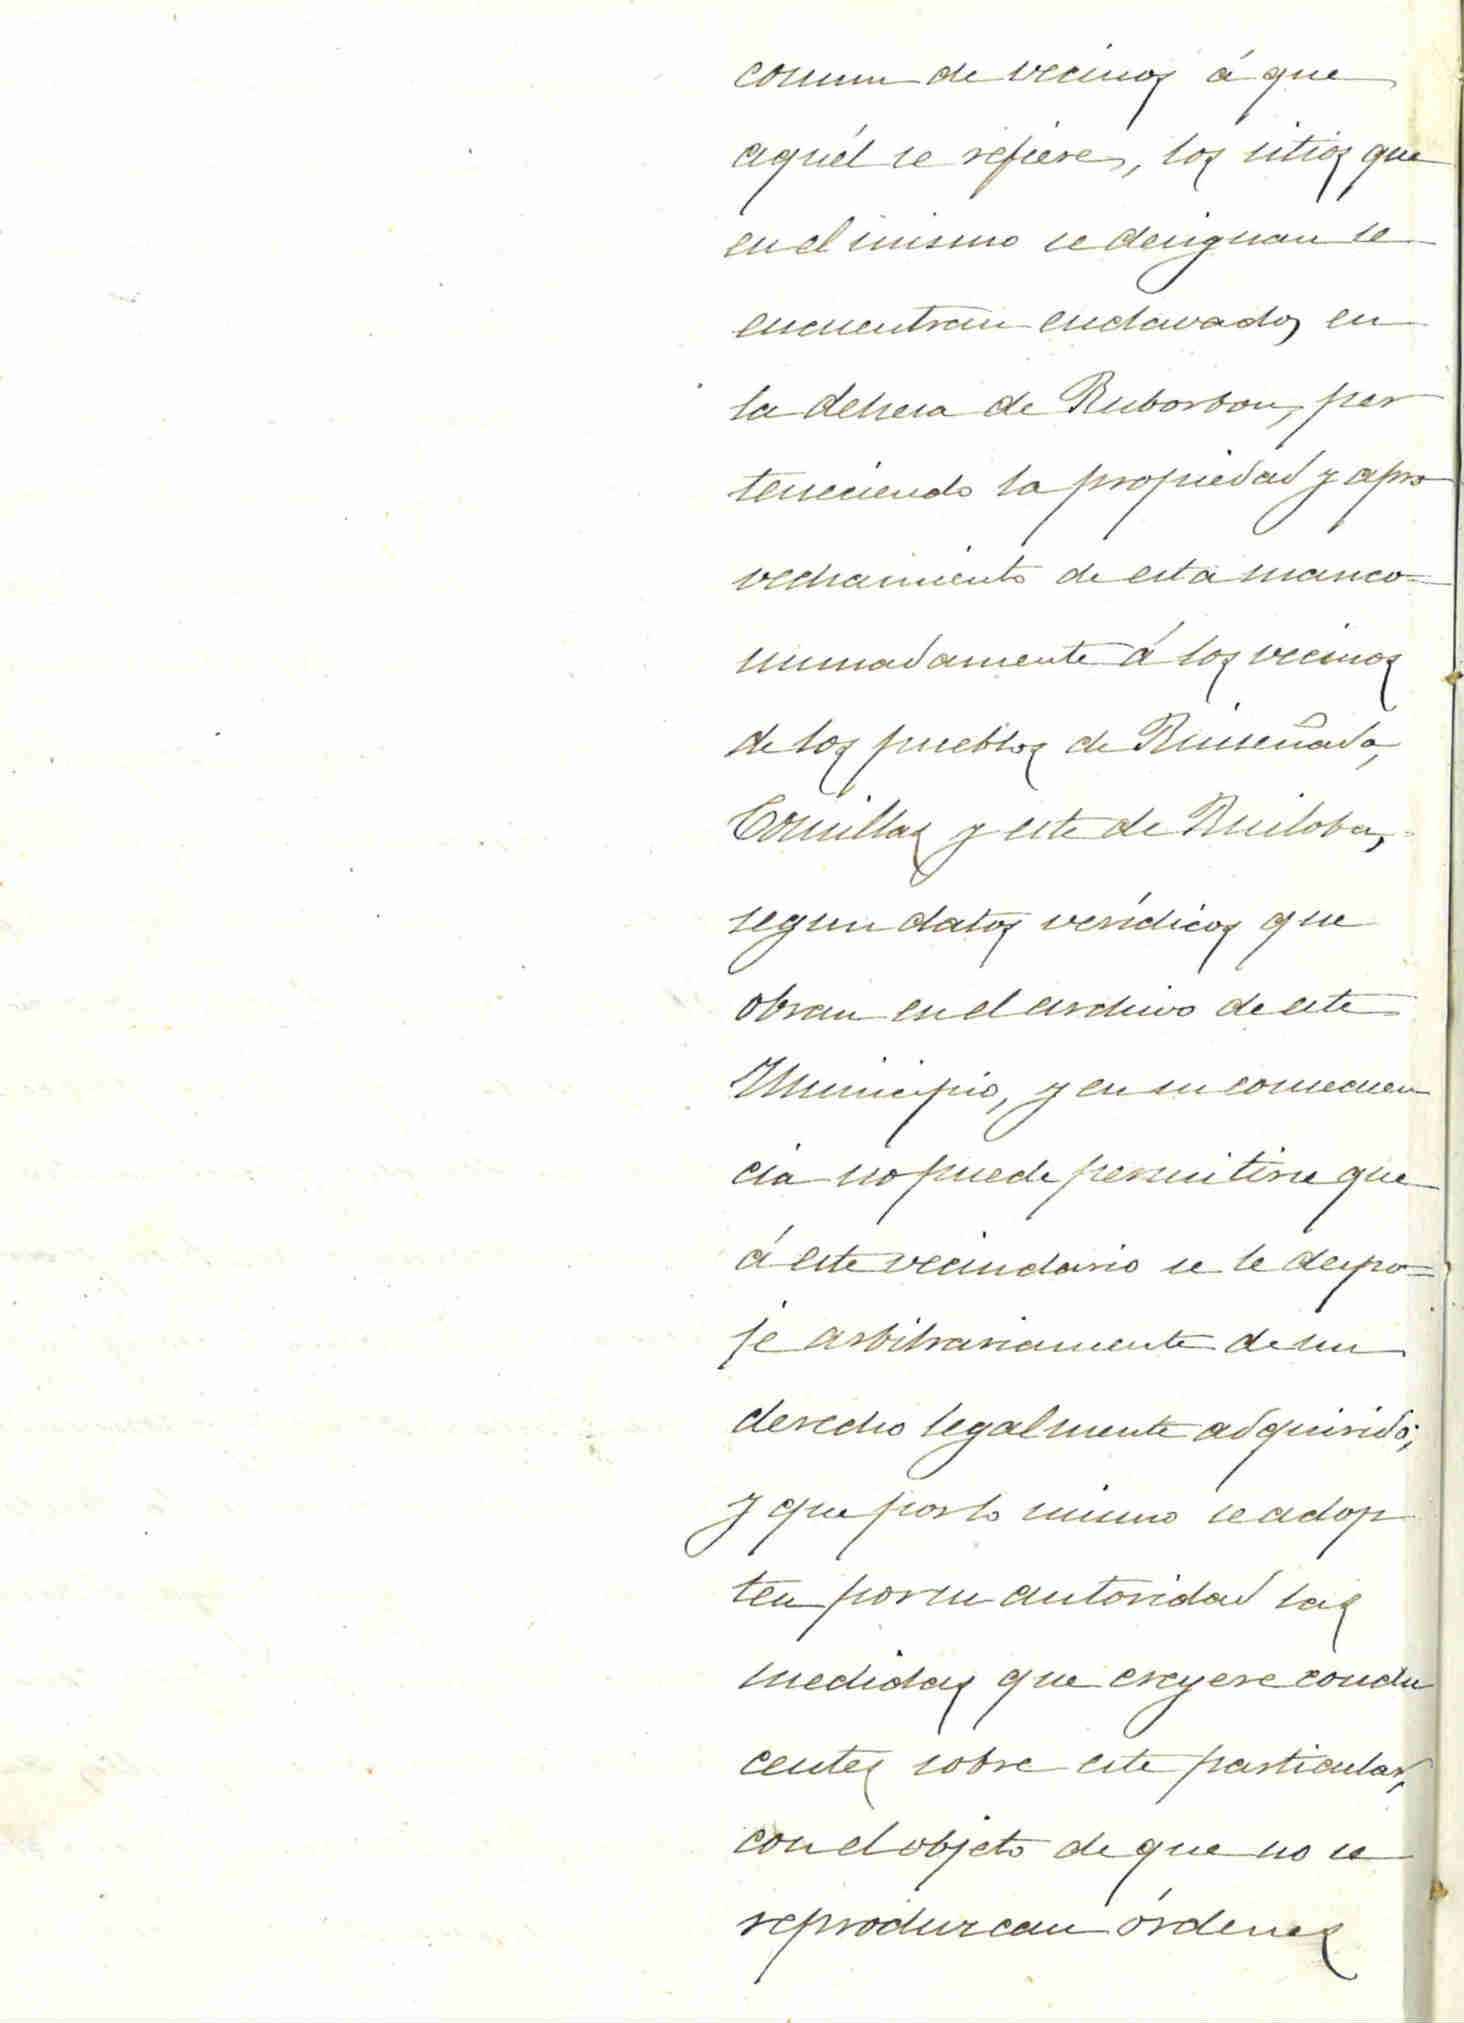 comun de vecinos á que
aquél se refiere, los sitios que
en el mismo se designan se
encuentran enclavados en
la dehesa de Ruborbon, per
teneciendo la propiedad y apro
vechamiento de esta manco=
munadamente á los vecinos
de los pueblos de Ruiseñada,
Comillas y este de Ruiloba,
segun datos verídicos que
obran en el archivo de este
Municipio, y en su consecuen
cia no puede permitirse que
á este vecindario se le despo=
je arbitrariamente de un
derecho legalmente adquirido;
y que por lo mismo se adop
ten por su autoridad las
medidas que creyere condu
centes sobre este particular,
con el objeto de que no se
reproduzcan órdenes